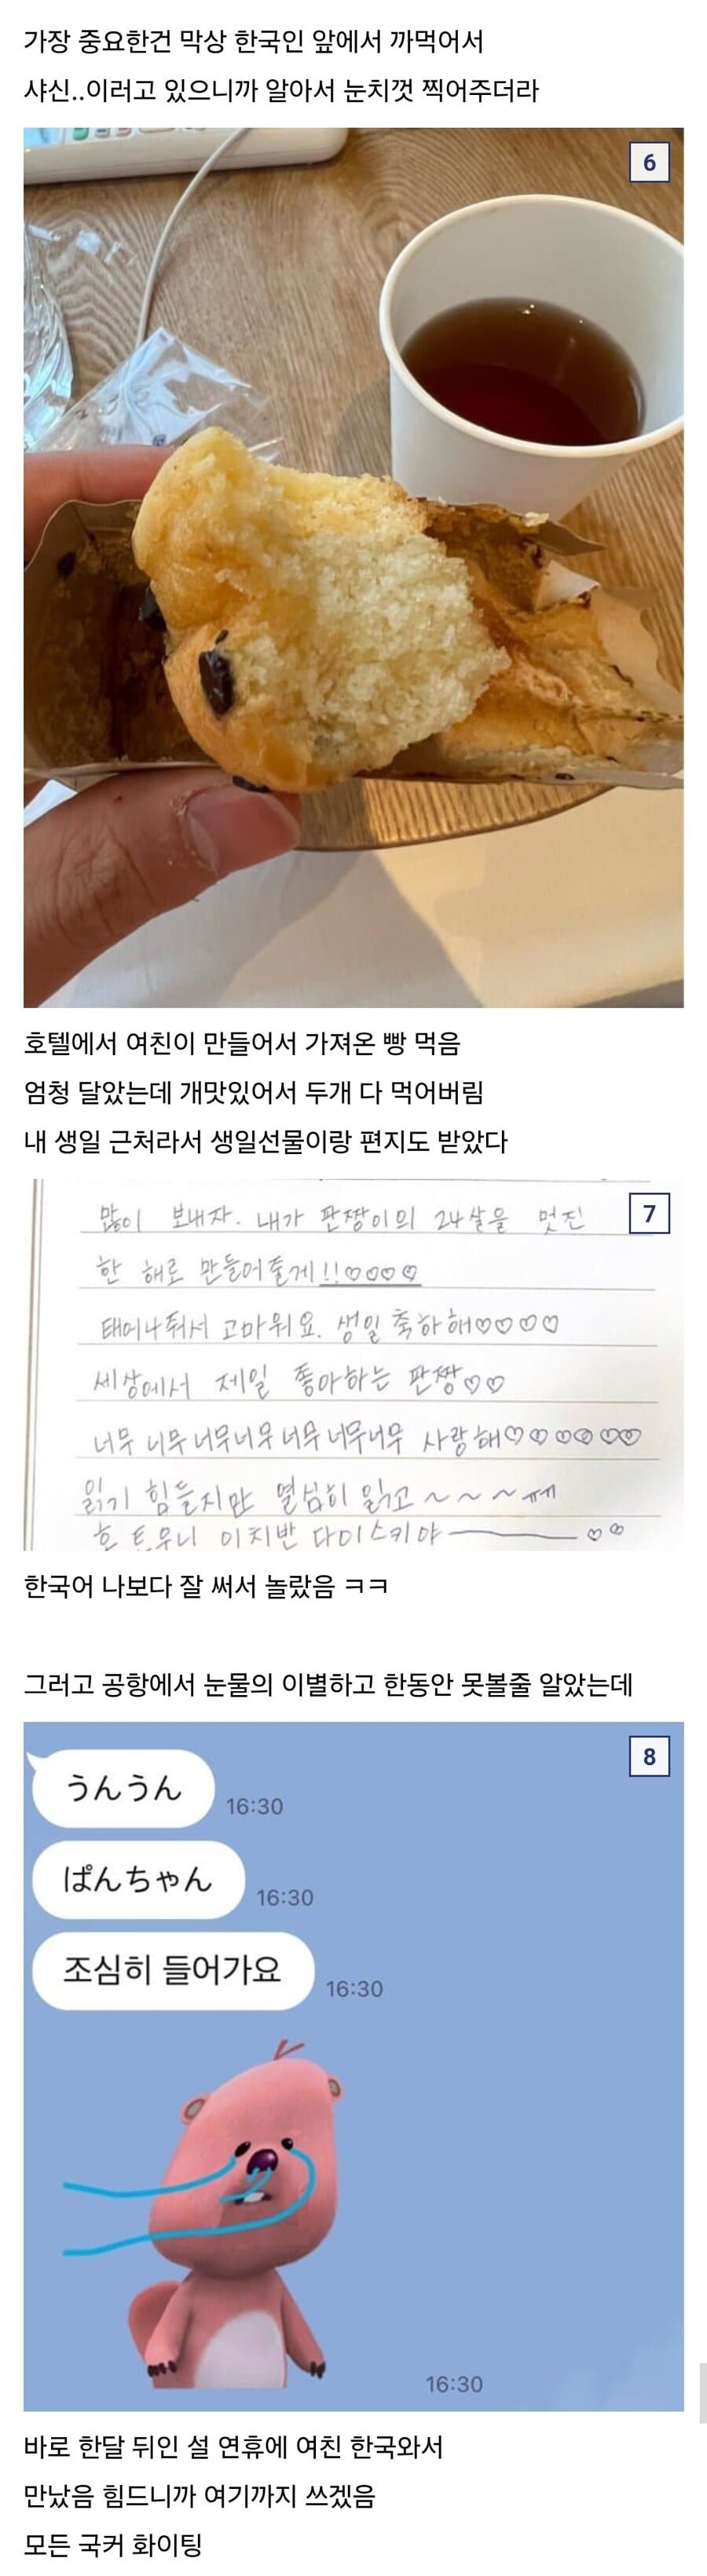 가장 중요한건 막상 한국인 앞에서 까먹어서
샤신..이러고 있으니까 알아서 눈치껏 찍어주더라
6
호텔에서 여친이 만들어서 가져온 빵 먹음
엄청 달았는데 개맛있어서 두개 다 먹어버림
내 생일 근처라서 생일선물이랑 편지도 받았다
7
많이 보내자. 내가 판짱이의 24살을 멋진
한 해로 만들어줄게!!♡♡♡♡
태어나줘서 고마워요. 생일 축하해♡♡♡♡
세상에서 제일 좋아하는 판짱♡♡
너무 너무 너무너무 너무 너무너무 사랑해♡♡♡♡♡♡
읽기 힘들지만 열심히 읽고~~~ㅠㅠ
혼토우니 이치반 다이스키야 ♡♡
한국어 나보다 잘 써서 놀랐음 ㅋㅋ
그러고 공항에서 눈물의 이별하고 한동안 못볼줄 알았는데
8
うんうん
16:30
ぱんちゃん
16:30
조심히 들어가요
16:30
16:30
바로 한달 뒤인 설 연휴에 여친 한국와서
만났음 힘드니까 여기까지 쓰겠음
모든 국커 화이팅